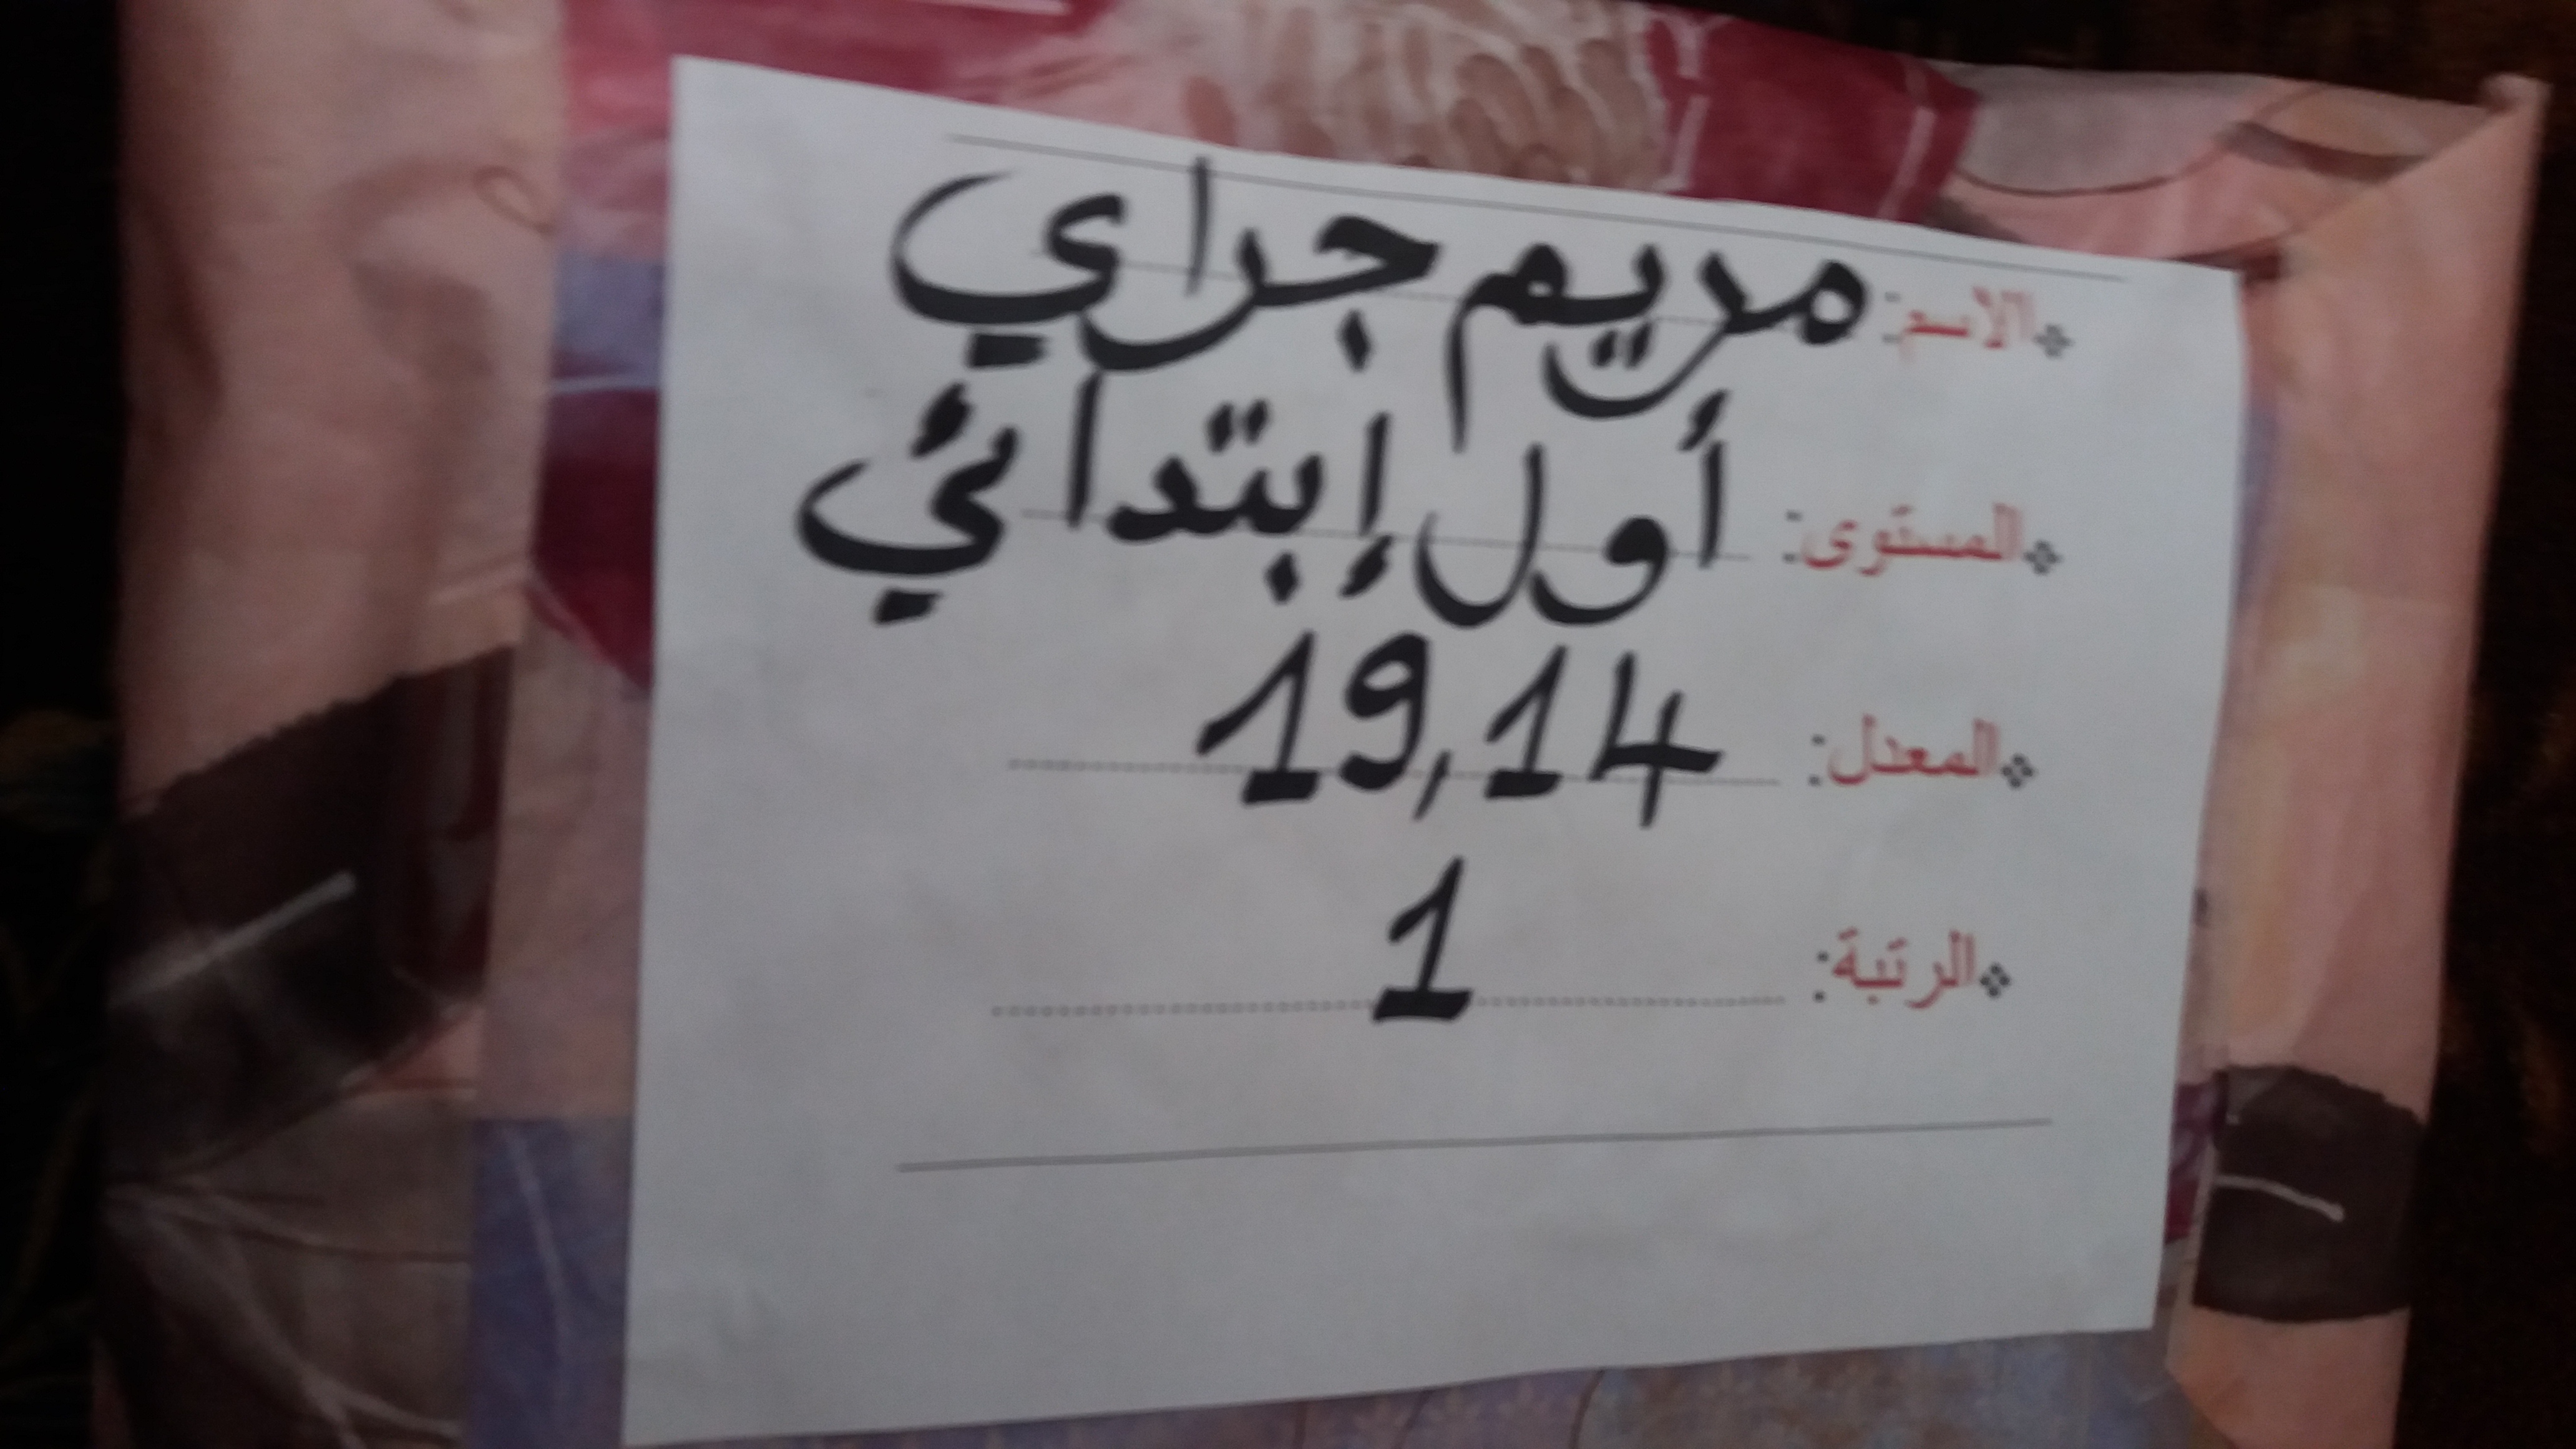 ❖الاسم: مريم جراي
❖المستوى: أول إبتدائي
❖المعدل: 19,14
❖الرتبة: 1